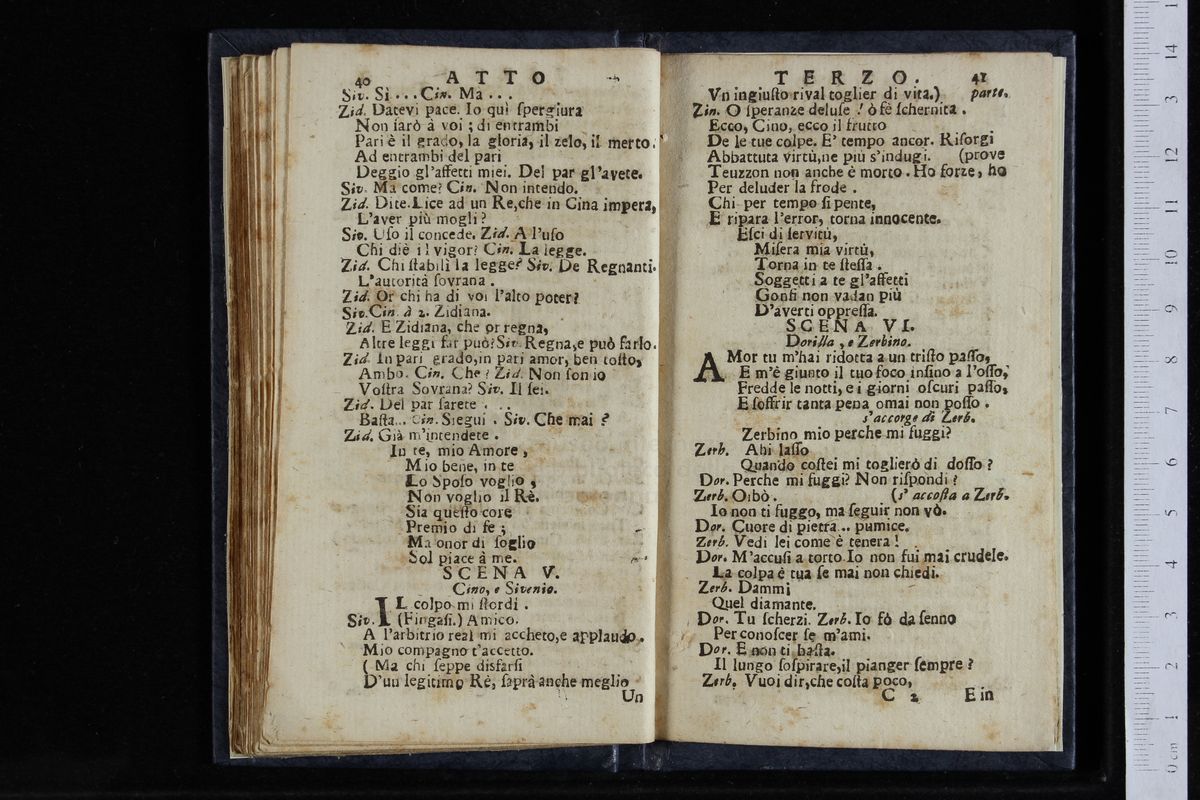 40 ATTO
Siv. Si ... Cin. Ma ...
Zid. Datevi pace. Io quì ſpergiura
Non ſarò à voi ; di entrambi
Pari è il grado, la gloria, il zelo, il merto.
Ad entrambi del pari
Deggio gl'affetti miei. Del par gl'avete.
Siv. Ma come? Cin. Non intendo.
Zid. Dite. Lice ad un Re, che in Cina impera,
L'aver più mogli?
Siv. Uſo il concede. Zid. A l'uſo
Chi diè il vigor? Cin. La legge.
Zid. Chi ſtabilì la legge? Siv. De Regnanti.
L'autorità ſovrana .
Zid. Or chi ha di voi l'alto poter?
Siv.Cin. à 2. Zidiana.
Zid. E Zidiana, che or regna,
Altre leggi far può? Siv. Regna, e può farlo.
Zid. In pari grado, in pari amor, ben toſto,
Ambo. Cin. Che ? Zid. Non ſon io
Voſtra Sovrana? Siv. Il ſei.
Zid. Del par ſarete . ..
Baſta... Cin. Siegui . Siv. Che mai ?
Zid. Già m'intendete .
In te, mio Amore ,
Mio bene, in te
Lo Spoſo voglio ,
Non voglio il Rè.
Sia queſto core
Premio di fe ;
Ma onor di ſoglio
Sol piace à me.
SCENA V.
Cino, e Sivenio.
IL colpo mi ſtordì .
Siv. (Fingaſi.) Amico.
A l'arbitrio real mi accheto, e applaudo.
Mio compagno t'accetto.
( Ma chi ſeppe disfarſi
D'un legitimo Rè, ſaprà anche meglio
Un
TERZO. 41
Vn ingiuſto rival toglier di vita.) parte.
Zin. O ſperanze deluſe ! ò fè ſchernita .
Ecco, Cino, ecco il frutto
De le tue colpe. E' tempo ancor. Riſorgi
Abbattuta virtù, ne più s'indugi. (prove
Teuzzon non anche è morto. Ho forze, ho
Per deluder la frode .
Chi per tempo ſi pente,
E ripara l'error, torna innocente.
Eſci di ſervitù,
Miſera mia virtù,
Torna in te ſteſſa .
Soggetti a te gl'affetti
Gonfi non vadan più
D'averti oppreſſa.
SCENA VI.
Dorilla , e Zerbino.
AMor tu m'hai ridotta a un triſto paſſo,
E m'è giunto il tuo foco inſino a l'oſſo,
Fredde le notti, e i giorni oſcuri paſſo,
E ſoffrir tanta pena omai non poſſo .
s'accorge di Zerb.
Zerbino mio perche mi fuggi?
Zerb. Ahi laſſo
Quando coſtei mi toglierò di doſſo ?
Dor. Perche mi fuggi? Non riſpondi ?
Zerb. Oibò . (s' accoſta a Zerb.
Io non ti fuggo, ma ſeguir non vò.
Dor. Cuore di pietra... pumice.
Zerb. Vedi lei come è tenera !
Dor. M'accuſi a torto. Io non fui mai crudele.
La colpa è tua ſe mai non chiedi.
Zerb. Dammi
Quel diamante.
Dor. Tu ſcherzi. Zerb. Io fò da ſenno
Per conoſcer ſe m'ami.
Dor. E non ti baſta.
Il lungo ſoſpirare, il pianger ſempre ?
Zerb. Vuoi dir, che coſta poco,
C 2 E in
0 cm 1 2 3 4 5 6 7 8 9 10 11 12 13 14